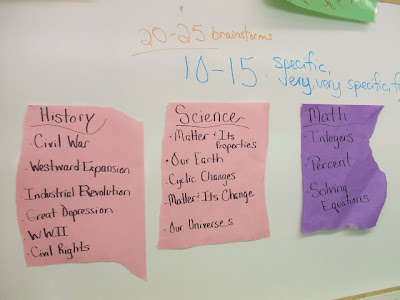 20-25 brainstorms
10-15 specific,
very, very specific, f
History
· Civil War
· Westward Expansion
· Industrial Revolution
· Great Depression
· WWII
· Civil Rights
Science
· Matter & Its
Properties
· Our Earth
· Cyclic Changes
· Matter & Its Change
· Our Universes
Math
· Integers
· Percent
· Solving
Equations